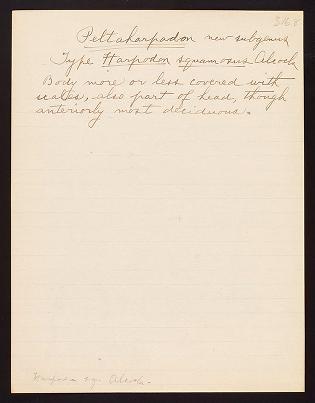 3168
Peltaharpadon new subgenus
Type Harpodon squamosus Alcock
Body more or less covered with
scales, also part of head, though
anteriorly most deciduous.
Harpodon squ. Alcock.